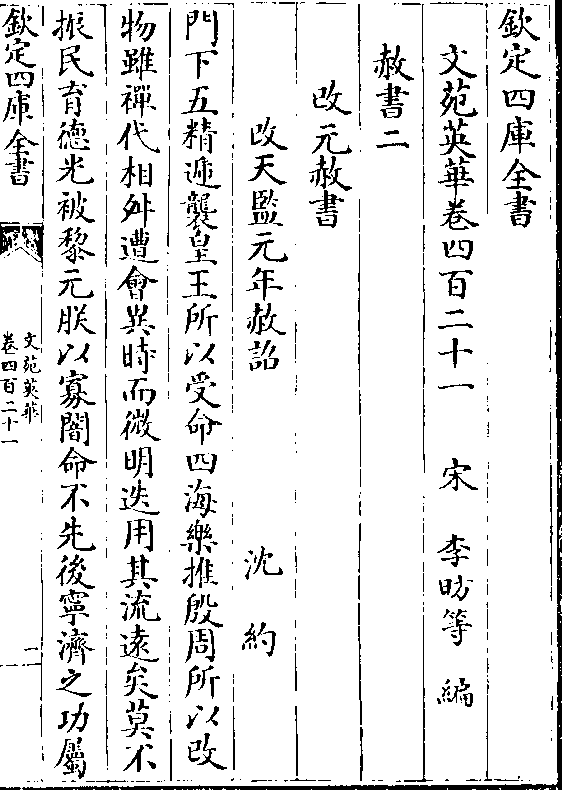 欽定四庫全書
文苑英華卷四百二十一　宋　李昉等　編
赦書二
改元赦書
改天監元年赦詔　沈約
門下五精逓襲皇王所以受命四海樂推殷周所以改
物雖禪代相舛遭會異時而微明迭用其流遠矣莫不
振民育徳光被黎元朕以寡闇命不先後寧濟之功屬
欽定四庫全書
文苑英華
卷四百二十一
一